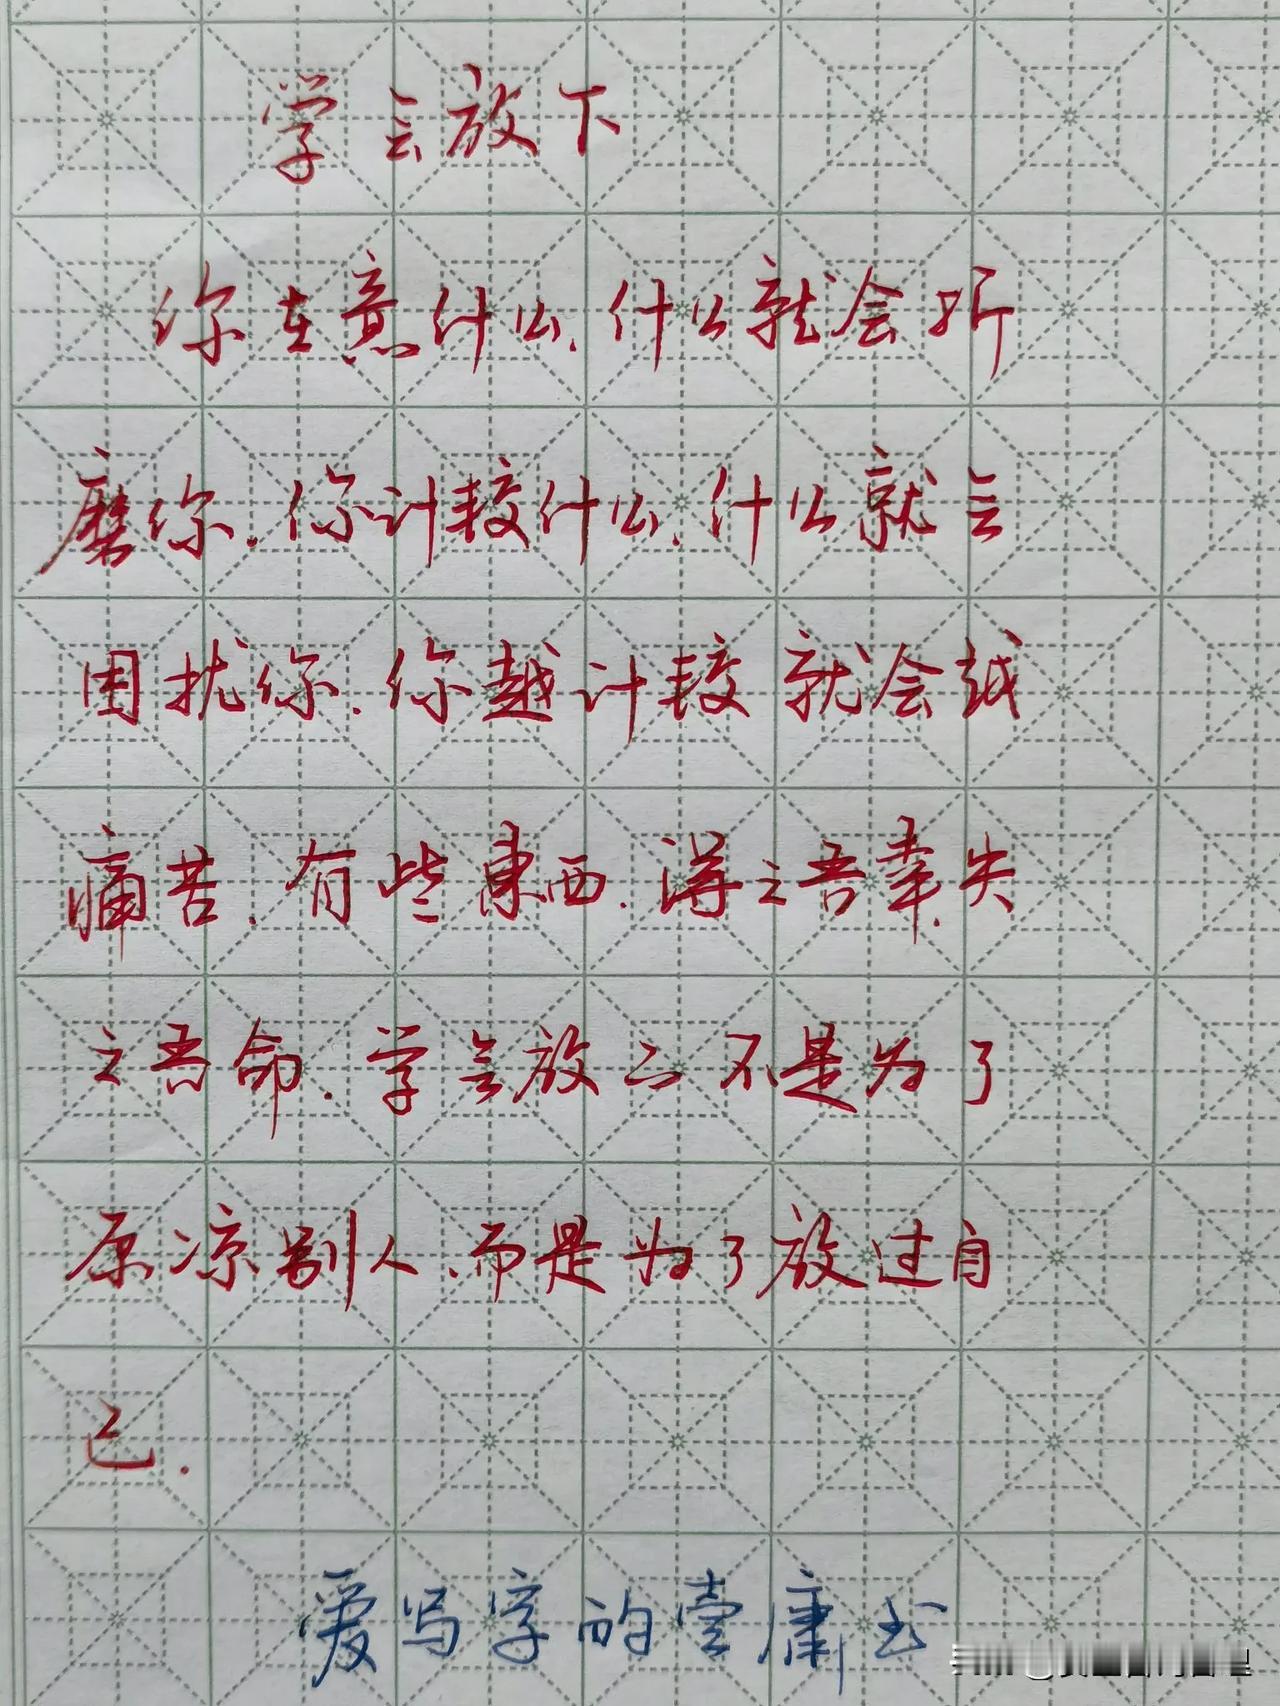 学会放下
你在意什么.什么就会折
磨你.你计较什么.什么就会
困扰你.你越计较就会越
痛苦.有些東西.得之吾幸.失
之吾命.学会放下不是为了
原凉别人.而是为了放过自
己.
爱写字的壹康书